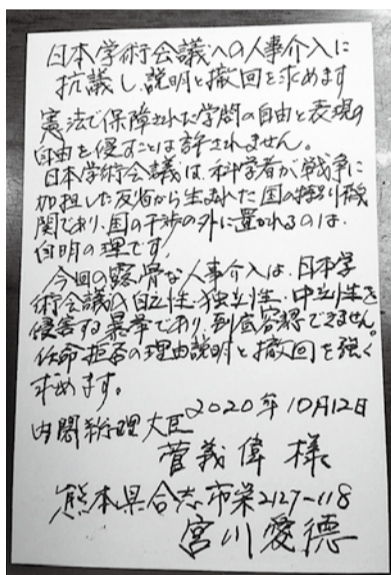 日本学術会議への人事介入に
抗議し、説明と撤回を求めます
憲法で保障された学問の自由と表現の
自由を侵すことは許されません。
日本学術会議は、科学者が戦争に
加担した反省から生まれた国の特別機
関であり、国の干渉の外に置かれるのは、
自明の理です。
今回の露骨な人事介入は、日本学
術会議の自立性・独立性・中立性を
侵害する暴挙であり、到底容認できません。
任命拒否の理由説明と撤回を強く
求めます。
2020年10月12日
内閣総理大臣
菅義偉 様
熊本県合志市栄2127-118
宮川愛徳